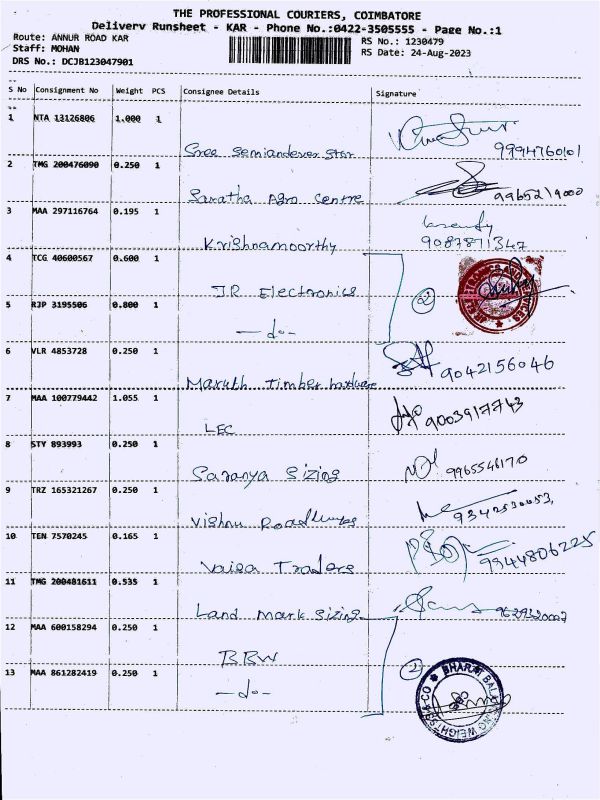 THE PROFESSIONAL COURIERS, COIMBATORE
Delivery Runsheet - KAR - Phone No.:0422-3505555 - Page No.:1
Route: ANNUR ROAD KAR
RS No.: 1230479
Staff: MOHAN
RS Date: 24-Aug-2023
DRS No.: DCJB123047901
S No Consignment No Weight PCS Consignee Details Signature
1 NTA 13126806 1.000 1
Sree Semiandever Star 9994760101
2 TMG 200476090 0.250 1
Saratha Agro Centre 9965219000
3 MAA 297116764 0.195 1
Krishnamoorthy 9087871347
4 TCG 40600567 0.600 1
JR Electronics 2
5 RJP 3195506 0.800 1
—do—
6 VLR 4853728 0.250 1
Maruth Timber hardware 9042156046
7 MAA 100779442 1.055 1
LEC 9003917743
8 STY 893993 0.250 1
Saranya Sizing 9965546170
9 TRZ 165321267 0.250 1
Vishnu 9342530053
10 TEN 7570245 0.165 1
Vaisa Traders 9344806225
11 TMG 200481611 0.535 1
Land mark Sizing
12 MAA 600158294 0.250 1
BBW 2
13 MAA 861282419 0.250 1
—do—
BHARAT BALANCING WEIGHTS & CO